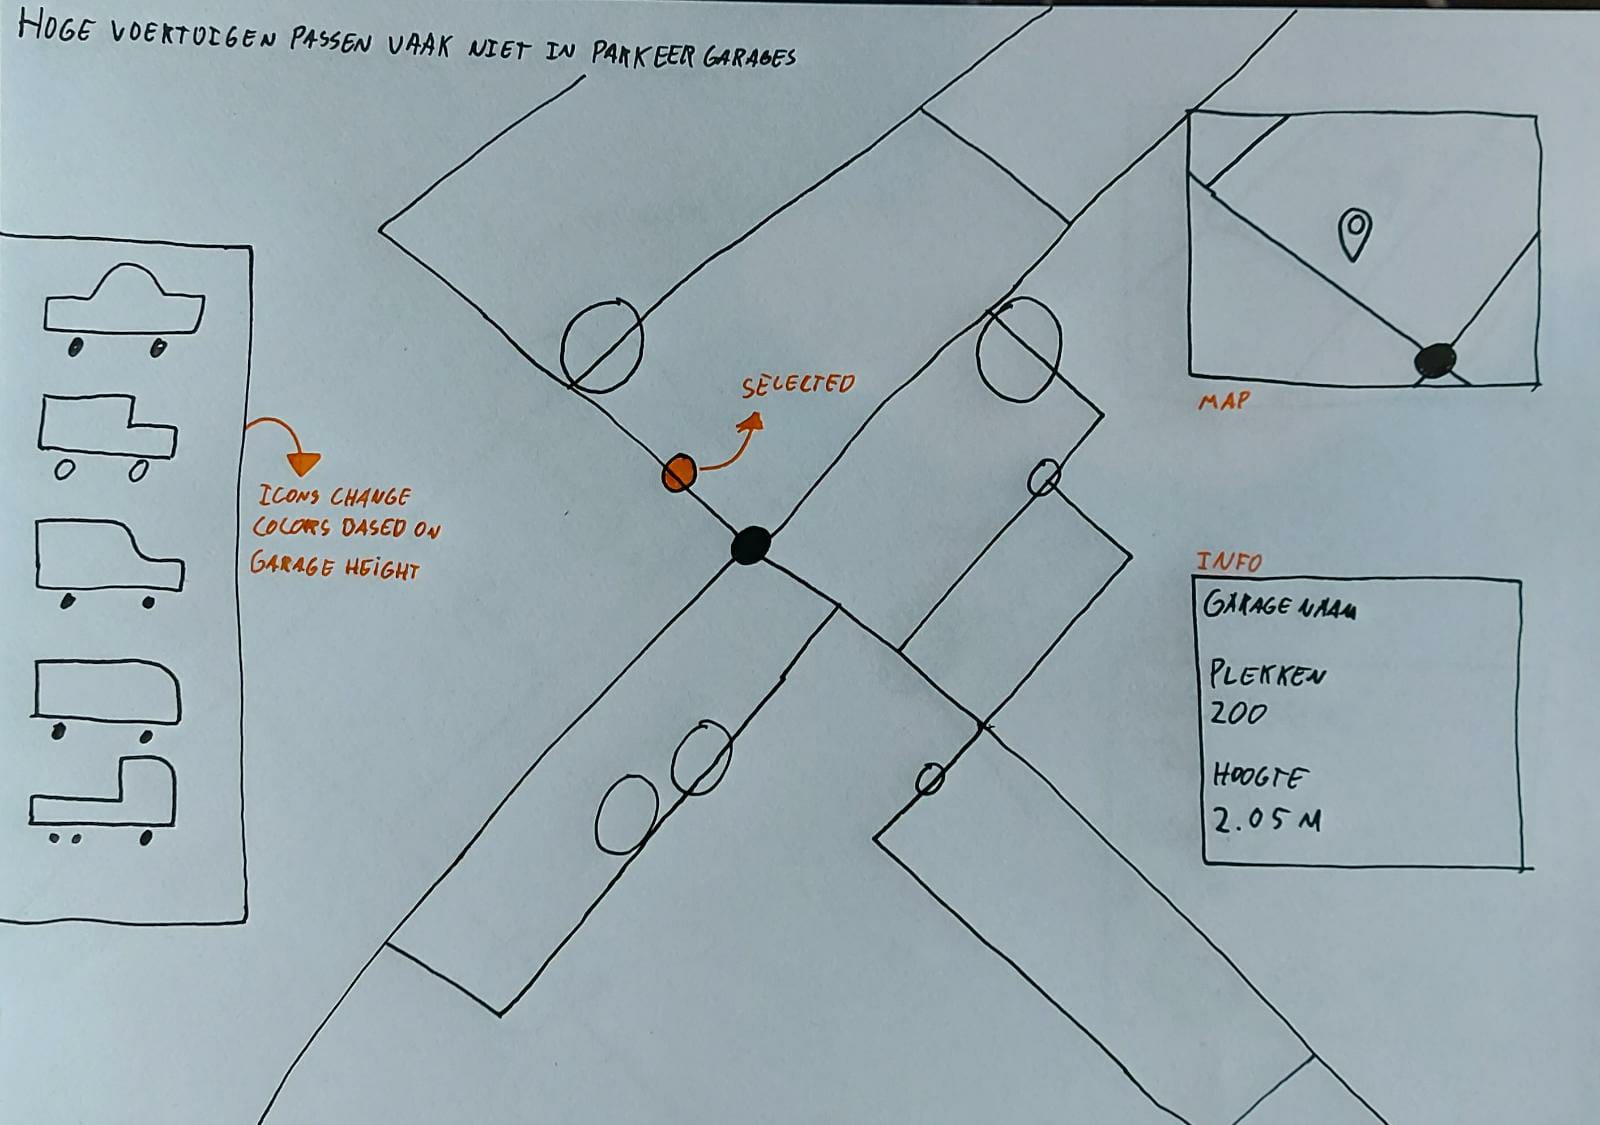 HOGE VOERTUIGEN PASSEN VAAK NIET IN PARKEERGARAGES
SELECTED
MAP
ICONS CHANGE
COLORS DASED ON
GARAGE HEIGHT
INFO
GARAGE NAAM
PLEKKEN
200
HOOGTE
2.05 M